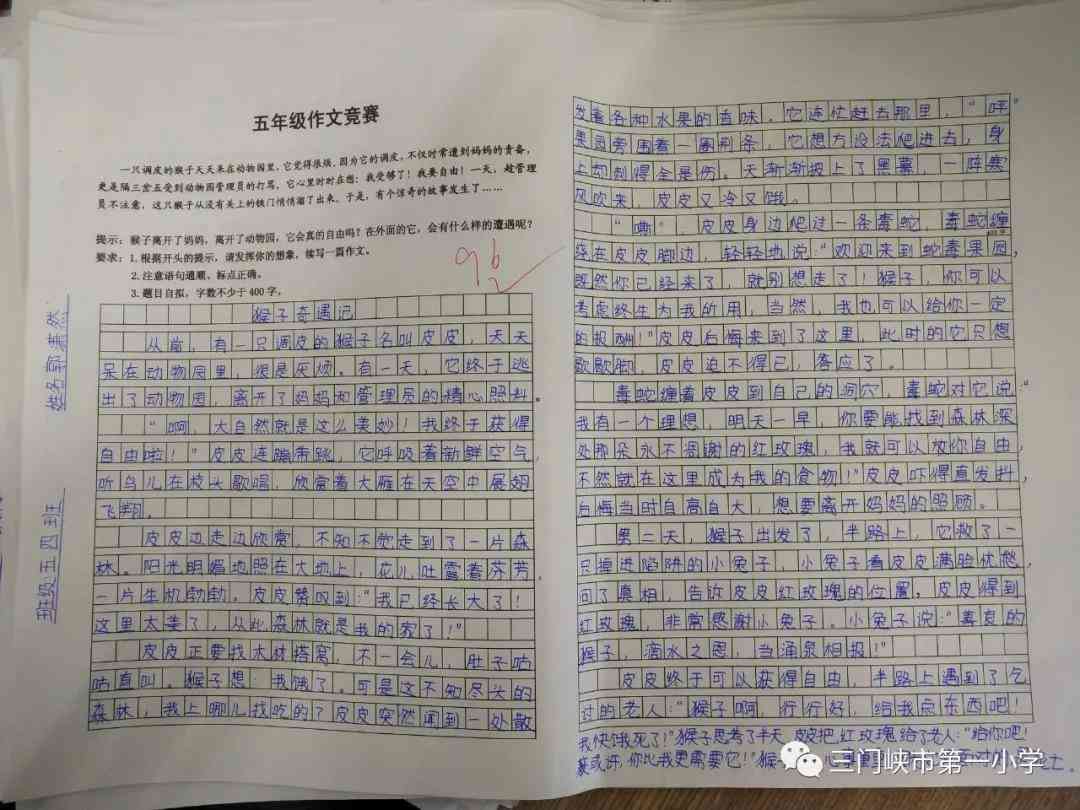 五年级作文竞赛
一只调皮的猴子天天呆在动物园里,它觉得很烦,因为它的调皮,不仅时常遭到妈妈的责备,
更是隔三岔五受到动物园管理员的打骂,它心里时时在想:我受够了!我要自由!一天,趁管理
员不注意,这只猴子从没有关上的铁门悄悄溜了出来。于是,有个惊奇的故事发生了……
提示:猴子离开了妈妈,离开了动物园,它会真的自由吗?在外面的它,会有什么样的遭遇呢?
要求:1.根据开头的提示,请发挥你的想象,续写一篇作文。
2.注意语句通顺、标点正确。
3.题目自拟,字数不少于400字。
96
班级五四班
姓名郭 然
猴子奇遇记
从前,有一只调皮的猴子名叫皮皮,天天
呆在动物园里,很是厌烦。有一天,它终于逃
出了动物园,离开了妈妈和管理员的精心照料。
“啊,大自然就是这么美妙!我终于获得
自由啦!”皮皮连蹦带跳,它呼吸着新鲜空气,
听鸟儿在枝头歌唱,欣赏着大雁在天空中展翅
飞翔。
皮皮边走边欣赏,不知不觉走到了一片森
林。阳光明媚地照在大地上,花儿吐露着芬芳,
一片生机勃勃。皮皮赞叹到:“我已经长大了!
这里太美了,从此森林就是我的家了!”
皮皮正要找木材搭窝,不一会儿,肚子咕
咕直叫。猴子想:我饿了。可是这不知尽头的
森林,我上哪儿找吃的?皮皮突然闻到一处散
发着各种水果的香味,它连忙赶去那里,“呼”
果园旁围着一圈荆条,它想方设法爬进去,身
上却刺得全是伤。天渐渐披上了黑幕,一阵寒
风吹来,皮皮又冷又饿。
“嘶”,皮皮身边爬过一条毒蛇,毒蛇缠
绕在皮皮脚边,轻轻地说:“欢迎来到蛇毒果园,
既然你已经来了,就别想走了!猴子,你可以
考虑终生为我的用,当然,我也可以给你一定
的报酬!”皮皮后悔来到了这里,此时的它只想
歇歇脚,皮皮迫不得已,答应了。
毒蛇缠着皮皮到自己的洞穴,毒蛇对它说:“
我有一个理想,明天一早,你要能找到森林深
处那朵永不凋谢的红玫瑰,我就可以放你自由,
不然就在这里成为我的食物!”皮皮吓得直发抖,
后悔当时自高自大,想要离开妈妈的照顾。
第二天,猴子出发了,半路上,它救了一
只掉进陷阱的小兔子,小兔子看皮皮满脸忧愁
问了真相,告诉皮皮红玫瑰的位置,皮皮得到
红玫瑰,非常感谢小兔子。小兔子说:“善良的
猴子,滴水之恩,当涌泉相报!”
皮皮终于可以获得自由,半路上遇到了乞
讨的老人:“猴子啊,行行好,给我点东西吧!
我快饿死了!”猴子思考了半天,皮皮把红玫瑰给了老人:“给你吧!
或许,你比我更需要它!”猴
三门峡市第一小学